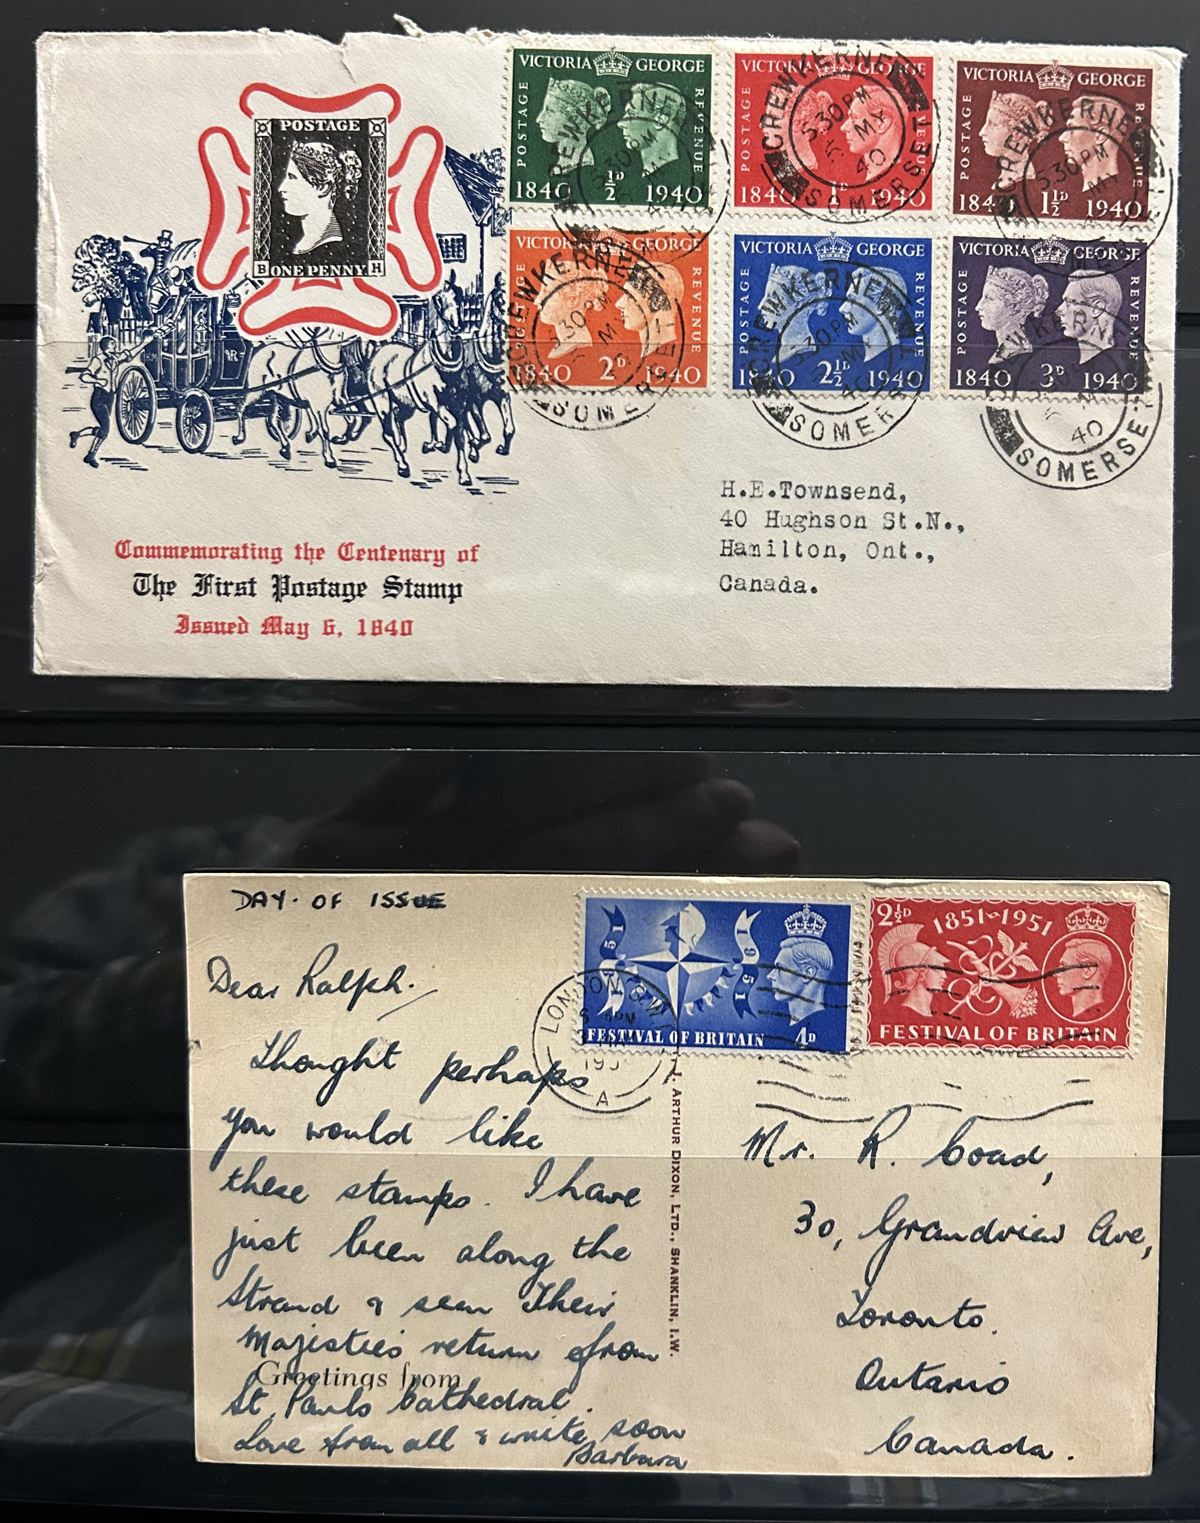 POSTAGE
B ONE PENNY H
VR
Commemorating the Centenary of
The First Postage Stamp
Issued May 6, 1840
VICTORIA GEORGE
POSTAGE REVENUE
1840 ½D 1940
VICTORIA GEORGE
POSTAGE REVENUE
1840 1D 1940
VICTORIA GEORGE
POSTAGE REVENUE
1840 1½D 1940
VICTORIA GEORGE
POSTAGE REVENUE
1840 2D 1940
VICTORIA GEORGE
POSTAGE REVENUE
1840 2½D 1940
VICTORIA GEORGE
POSTAGE REVENUE
1840 3D 1940
CREWKERNE
5.30 PM
MY
40
SOMERSET
CREWKERNE
5.30 PM
MY
40
SOMERSET
CREWKERNE
5.30 PM
MY
CREWKERNE
5.30 PM
SOMERSET
CREWKERNE
5.30 PM
MY
40
SOMERSET
CREWKERNE
40
SOMERSET
H.E.Townsend,
40 Hughson St.N.,
Hamilton, Ont.,
Canada.
DAY. OF ISSUE
Dear Ralph.
Thought perhaps
you would like
these stamps. I have
just been along the
Strand & seen Their
Majesties return from
Greetings from
St. Pauls Cathedral.
Love from all & write soon
Barbara
J. ARTHUR DIXON, LTD., SHANKLIN, I.W.
LONDON S.W.1
PM
195
A
1851 1951
FESTIVAL OF BRITAIN 4D
2½D 1851-1951
FESTIVAL OF BRITAIN
Mr. R. Coad,
30, Grandview Ave,
Toronto.
Ontario
Canada.